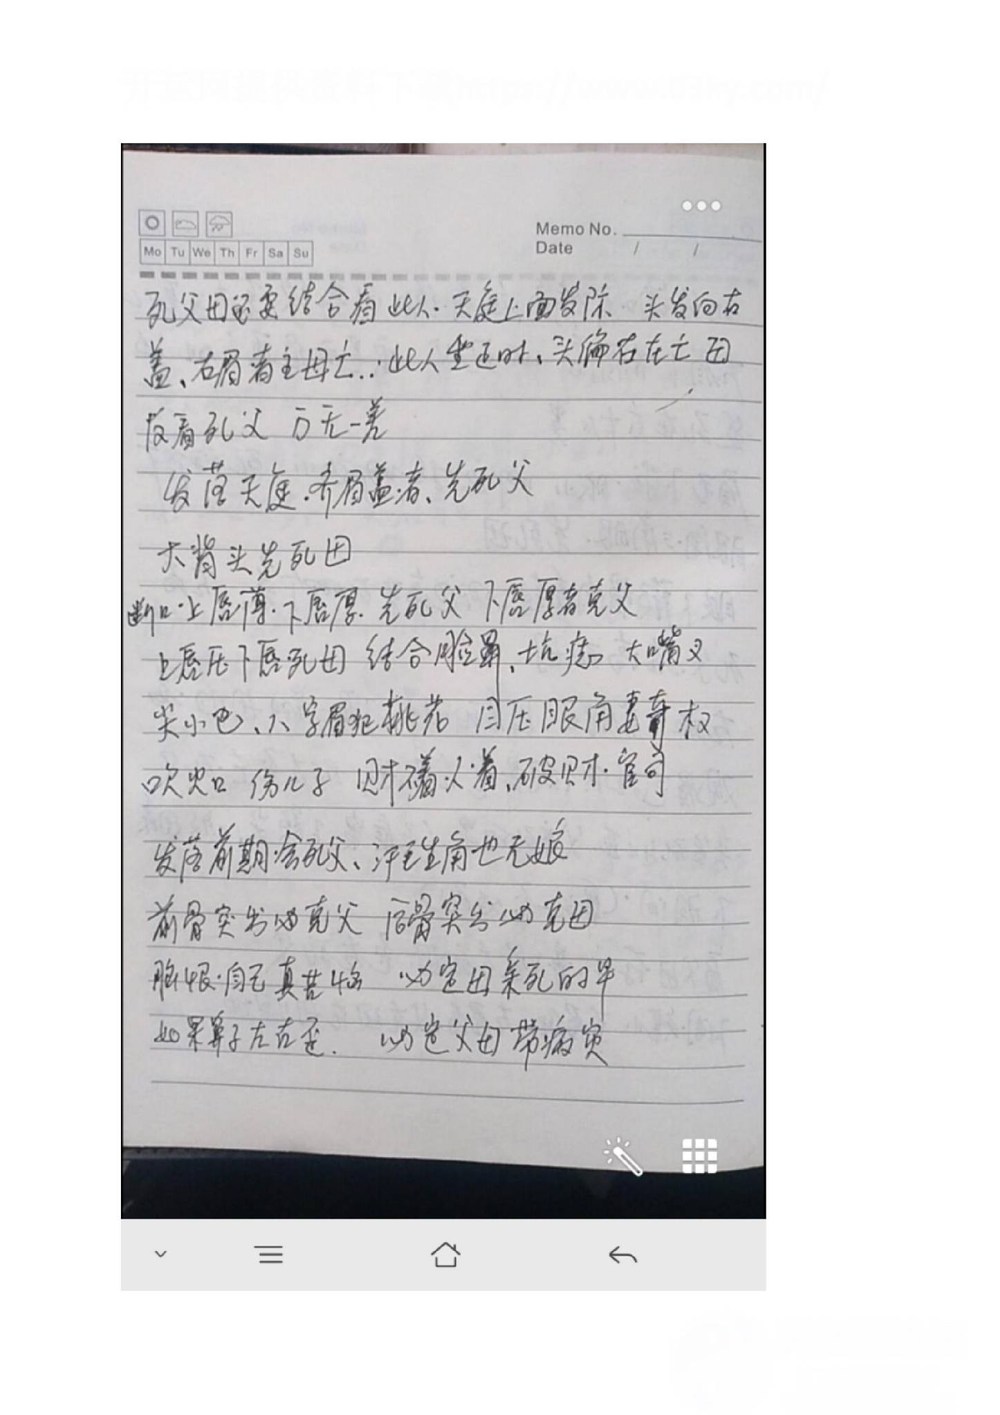 Memo No.
Mo Tu We Th Fr Sa Su
Date / /
死父母还要结合看此人.天庭上面发际 头发向右
盖、右眉者主母亡.:此人坐 时、头偏右在亡母
反看死父 万无一差
发落天庭.齐眉盖者、先死父
大背头先死母
断口.上唇薄.下唇厚.先死父 下唇厚者克父
上唇压下唇死母 结合脸鼻、坑痣 大嘴叉
尖小巴、八字眉犯桃花 眉压眼角妻夺权
吹火口 伤儿子 财不着人着、破财.官司
发落前期.会死父、 生角也无娘
前骨突出必克父 后骨突出必克母
自己真 必定母亲死的早
如果鼻子左右歪. 必定父母带病灾